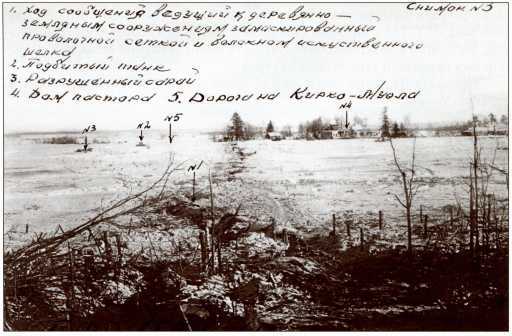 Снимок N3
1. Ход сообщений ведущий к деревянно-
земляным сооружениям замаскированный
проволочной сеткой и волокном искуственного
шелка
2. Подбитый танк
3. Разрушенный сарай
4. Дом пастора 5. Дорога на Кирко-Муола
N3
N2
N5
N4
N1